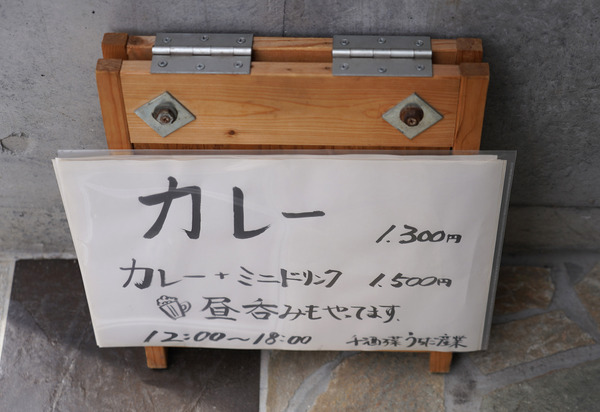 カレー 1.300円
カレー+ミニドリンク 1.500円
昼呑みもやってます.
12:00〜18:00 産業